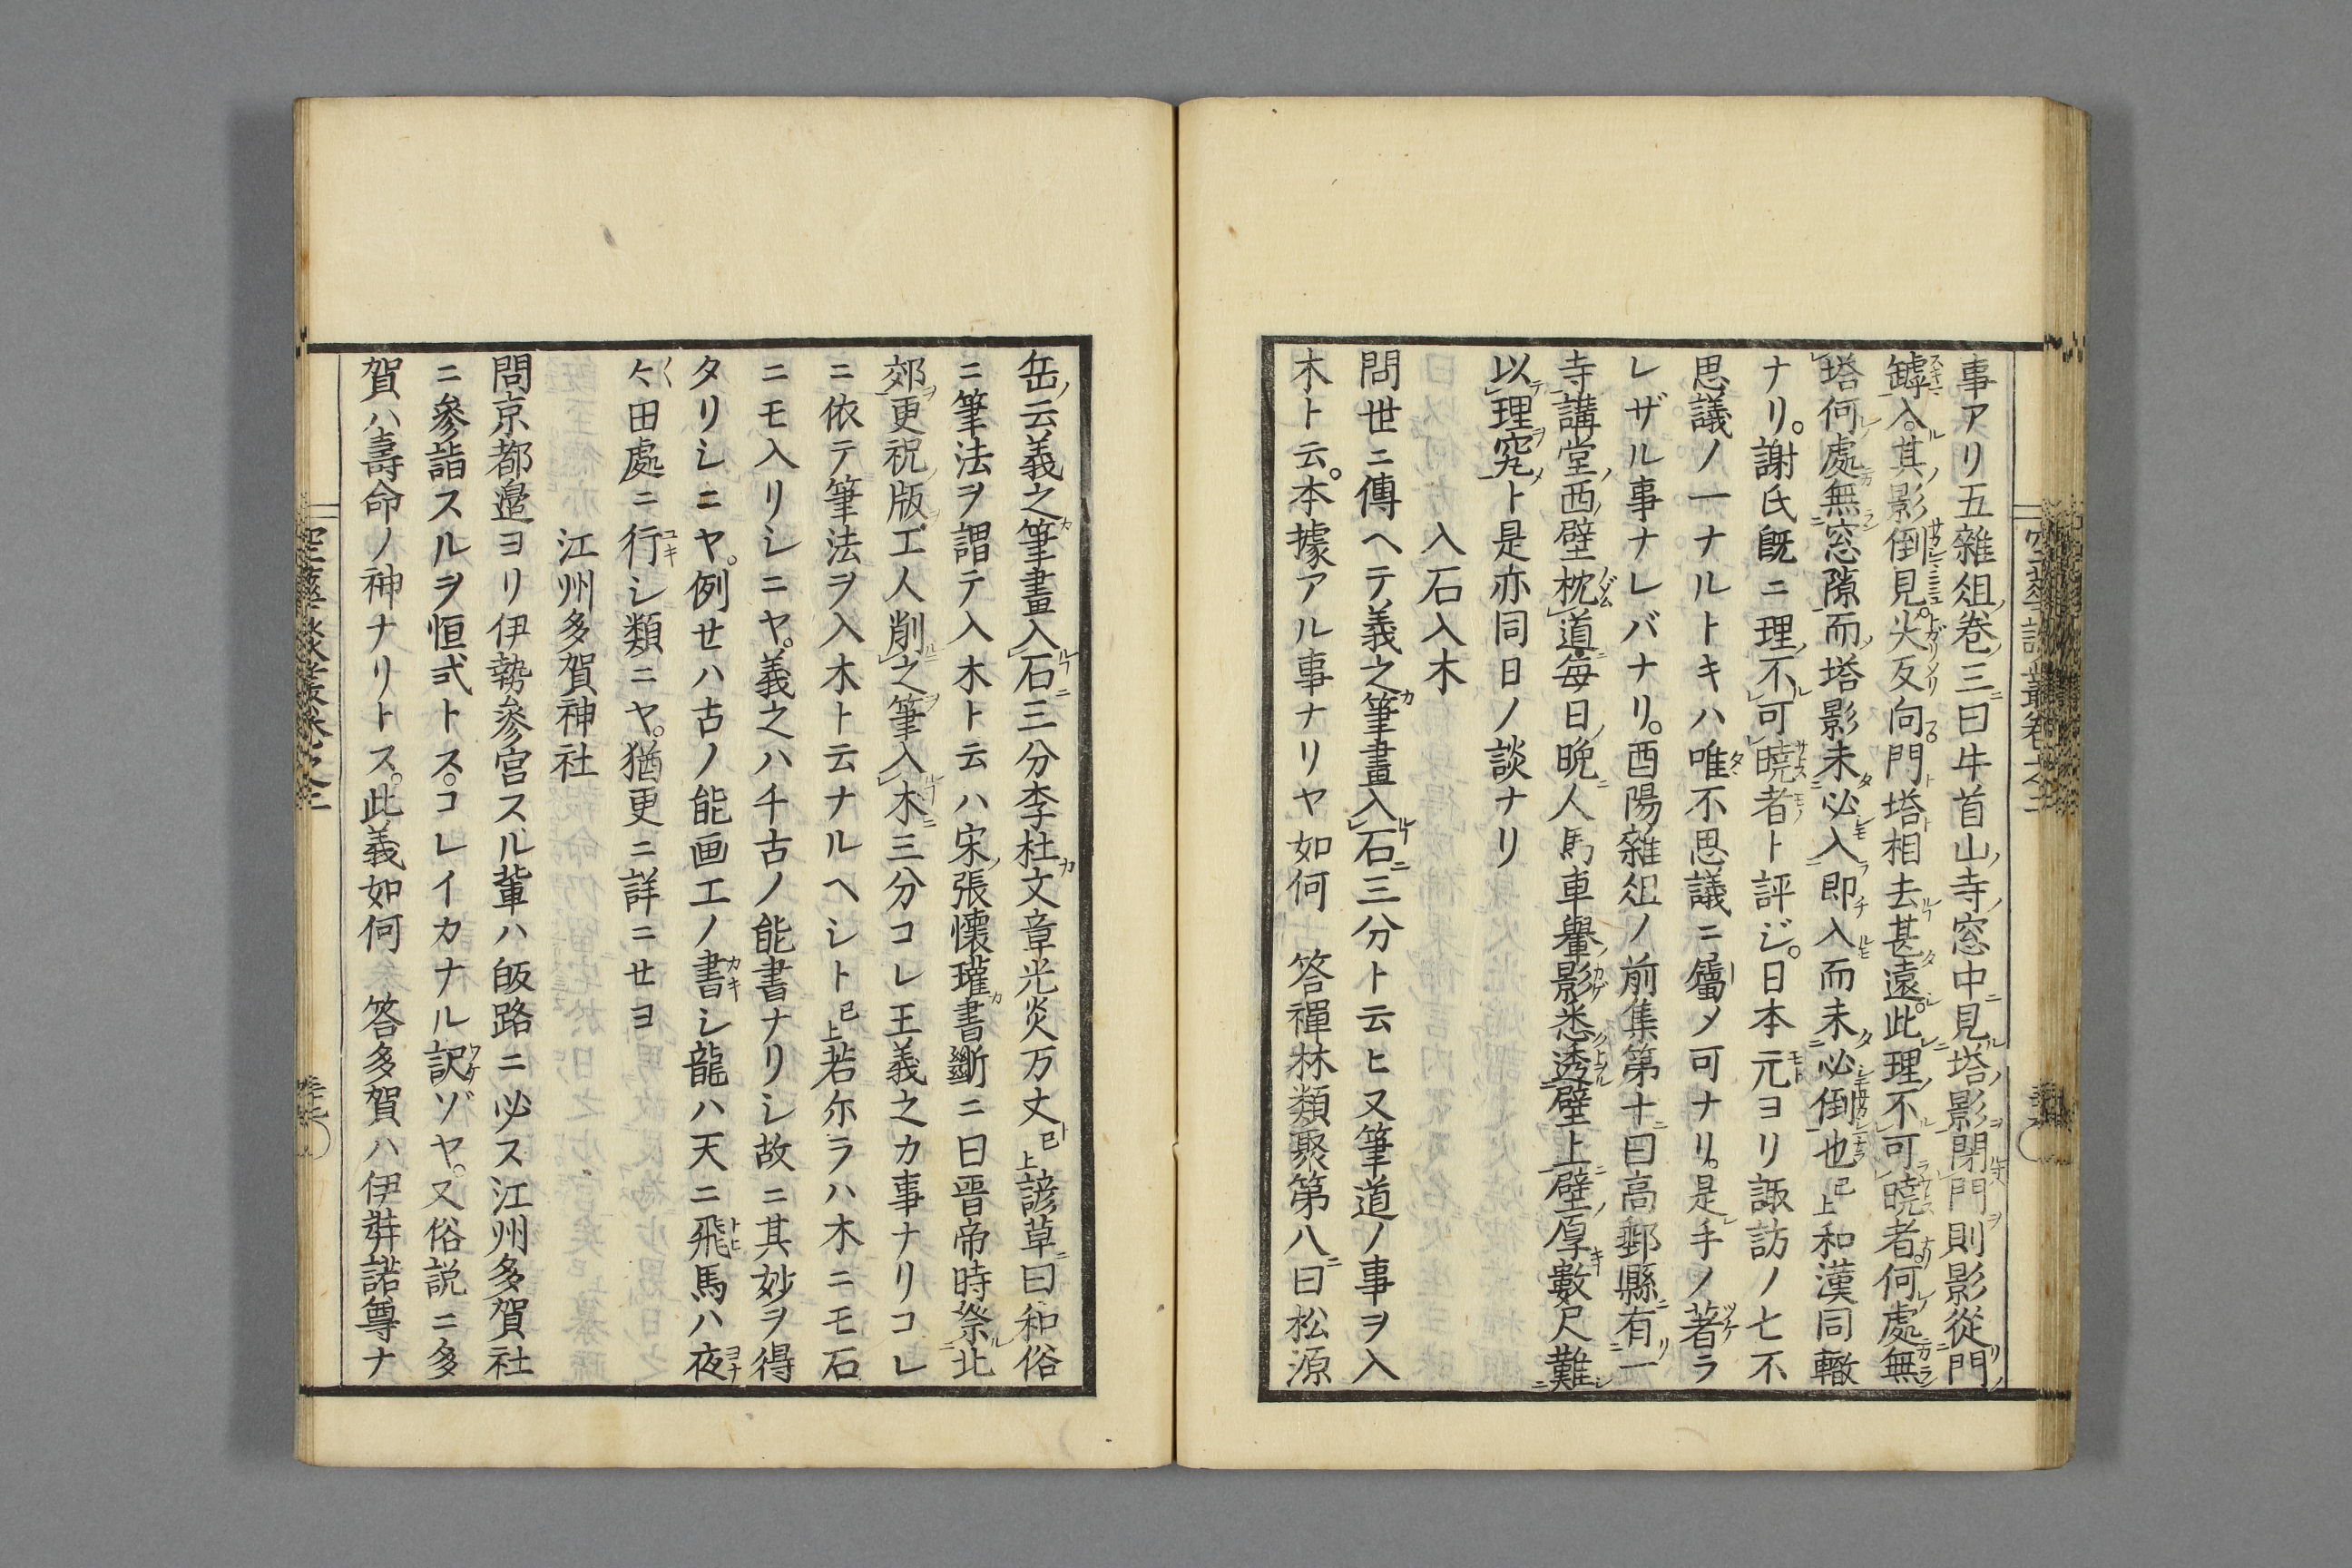 事アリ五雜俎卷三曰牛首山寺窓中見塔影閉門則影從門
罅入其影倒見尖反向門塔相去甚遠此理不可曉者何處無
塔何處無窓隙而塔影未必入即入而未必倒也已上和漢同轍
ナリ。謝氏既ニ理不可曉者ト評ジ。日本元ヨリ諏訪ノ七不
思議ノ一ナルトキハ唯不思議ニ屬メ可ナリ。是手ノ著ラ
レザル事ナレバナリ。酉陽雜俎ノ前集第十曰高郵縣有一
寺講堂西壁枕道每日晚人馬車轝影悉透壁上壁厚數尺難
以理究ト是亦同日ノ談ナリ
入石入木
問世ニ傳ヘテ義之筆畫入石三分ト云ヒ又筆道ノ事ヲ入
木ト云。本據アル事ナリヤ如何　答禪林類聚第八曰松源
岳云義之筆畫入石三分李杜文章光炎万丈已上諺草曰和俗
ニ筆法ヲ謂テ入木ト云ハ宋張懷瓘書斷ニ曰晋帝時祭北
郊更祝版工人削之筆入木三分コレ王義之カ事ナリコレ
ニ依テ筆法ヲ入木ト云ナルヘシト已上若尓ラハ木ニモ石
ニモ入リシニヤ。義之ハ千古ノ能書ナリシ故ニ其妙ヲ得
タリシニヤ。例セハ古ノ能画工ノ書シ龍ハ天ニ飛馬ハ夜
々田處ニ行シ類ニヤ。猶更ニ詳ニセヨ
江州多賀神社
問京都邊ヨリ伊勢參宮スル輩ハ皈路ニ必ス江州多賀社
ニ參詣スルヲ恒式トス。コレイカナル訳ゾヤ。又俗説ニ多
賀ハ壽命ノ神ナリトス。此義如何　答多賀ハ伊弉諾尊ナ